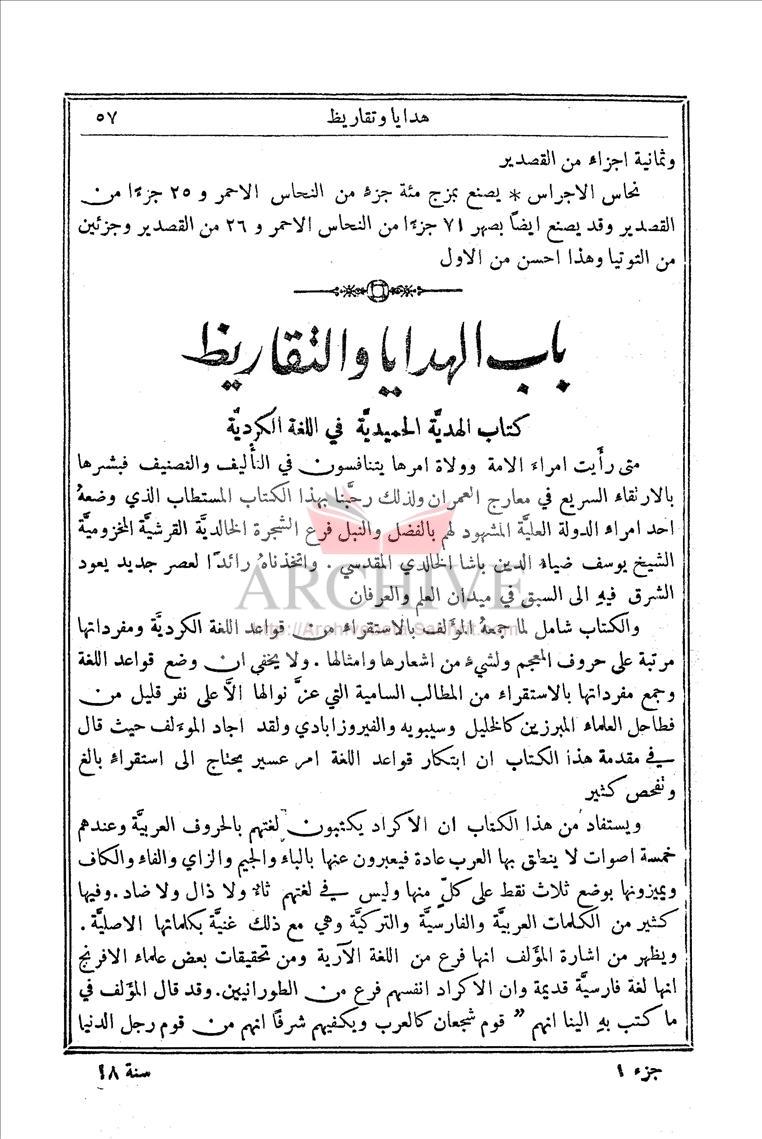 هدايا وتقاريظ ٥٧
وثمانية اجزاء من القصدير
نحاس الاجراس * يصنع بمزج مئة جزء من النحاس الاحمر و ٢٥ جزءًا من
القصدير وقد يصنع ايضاً بصهر ٧١ جزءًا من النحاس الاحمر و ٢٦ من القصدير وجزئين
من التوتيا وهذا احسن من الاول
باب الهدايا والتقاريظ
كتاب الهديَّة الحميديَّة في اللغة الكرديَّة
متى رأَيت امراء الامة وولاة امرها يتنافسون في التأليف والتصنيف فبشرها
بالارنقاء السريع في معارج العمران ولذلك رحَّبنا بهذا الكتاب المستطاب الذي وضعهُ
احد امراء الدولة العليَّة المشهود لهم بالفضل والنبل فرع الشجرة الخالديَّة القرشيَّة المخزوميَّة
الشيخ يوسف ضياء الدين باشا الخالدي المقدسي . واتخذناهُ رائدًا لعصر جديد يعود
الشرق فيهِ الى السبق في ميدان العلم والعرفان
والكتاب شامل لما جمعهُ المؤلف بالاستقراء من قواعد اللغة الكرديَّة ومفرداتها
مرتبة على حروف المعجم ولشيء من اشعارها وامثالها . ولا يخفى ان وضع قواعد اللغة
وجمع مفرداتها بالاستقراء من المطالب السامية التي عزَّ نوالها الاَّ على نفر قليل من
فطاحل العلماء المبرزين كالخليل وسيبويه والفيروزابادي ولقد اجاد الموءلف حيث قال
في مقدمة هذا الكتاب ان ابتكار قواعد اللغة امر عسير يحتاج الى استقراء بالغ
وتفحص كثير
ويستفاد من هذا الكتاب ان الاكراد يكتبون لغتهم بالحروف العربيَّة وعندهم
خمسة اصوات لا ينطق بها العرب عادة فيعبرون عنها بالباء والجيم والزاي والفاء والكاف
ويميزونها بوضع ثلاث نقط على كلٍّ منها وليس في لغتهم ثاء ولا ذال ولا ضاد . وفيها
كثير من الكلمات العربيَّة والفارسيَّة والتركيَّة وهي مع ذلك غنيَّة بكلماتها الاصليَّة .
ويظهر من اشارة المؤلف انها فرع من اللغة الآرية ومن تحقيقات بعض علماء الافرنج
انها لغة فارسيَّة قديمة وان الاكراد انفسهم فرع من الطورانيين . وقد قال المؤلف في
ما كتب بهِ الينا انهم " قوم شجعان كالعرب ويكفيهم شرفًا انهم من قوم رجل الدنيا
جزء ١ سنة ١٨
ARCHIVE